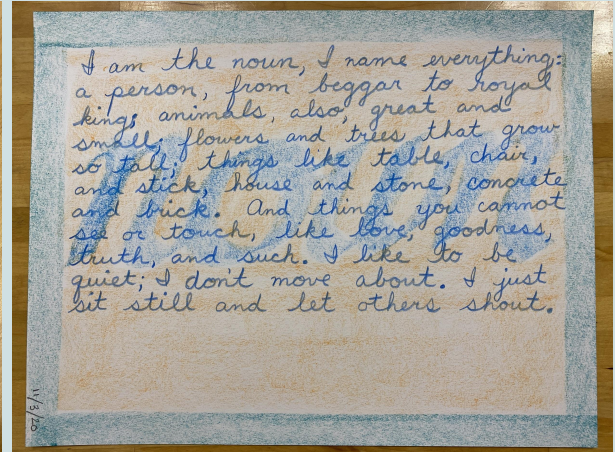 I am the noun, I name everything:
a person, from beggar to royal
king; animals, also, great and
small; flowers and trees that grow
so tall; things like table, chair,
and stick, house and stone, concrete
and brick. And things you cannot
see or touch, like love, goodness,
truth, and such. I like to be
quiet; I don't move about. I just
sit still and let others shout.
noun
11/3/20